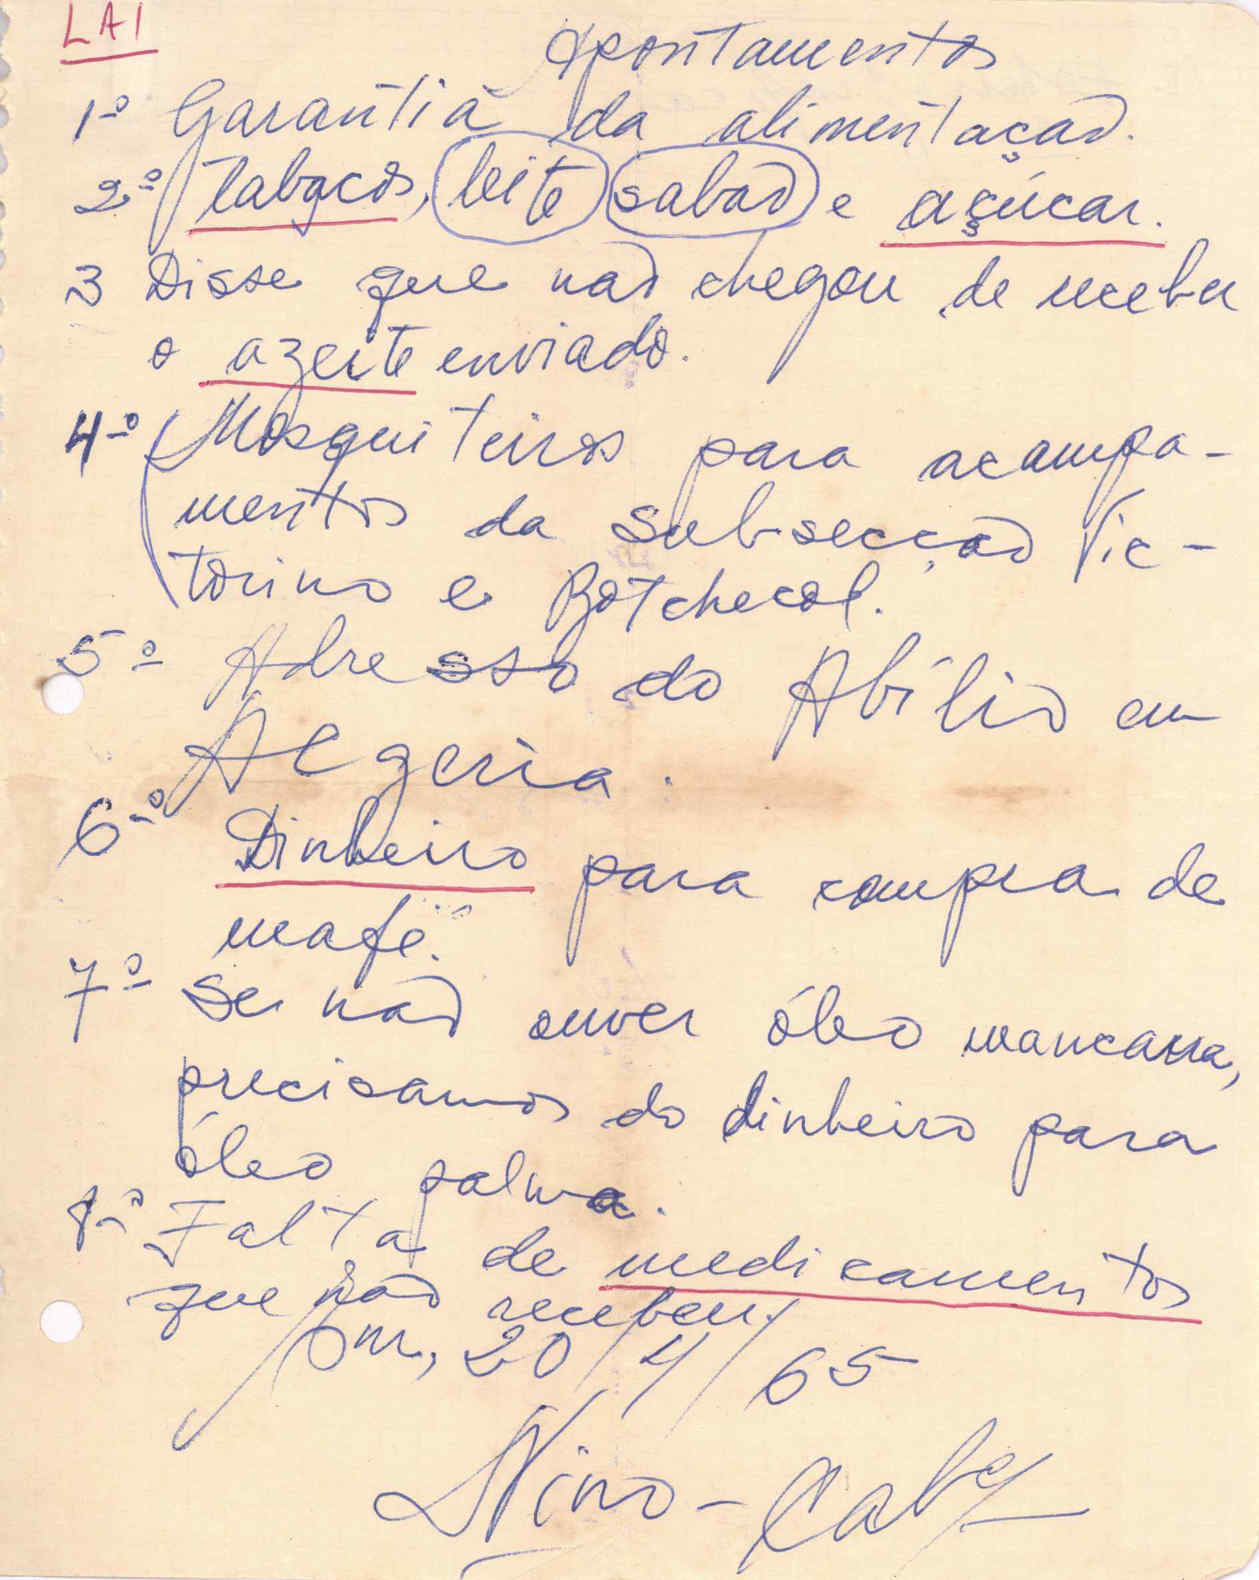 LAI
Apontamentos
1º Garantia da alimentação.
2º Tabacos, leite sabão e açúcar.
3 Disse que não chegou de receber
o azeite enviado.
4º Mosquiteiros para acampa-
mentos da subsecção Vic-
torino e Botchecol.
5º Adresso do Abílio em
Algeria.
6º Dinheiro para compra de
mafé.
7º Se não ouver óleo mancarra,
precisamos do dinheiro para
óleo palma.
8º Falta de medicamentos
que não recebeu.
20/4/65
Nino-